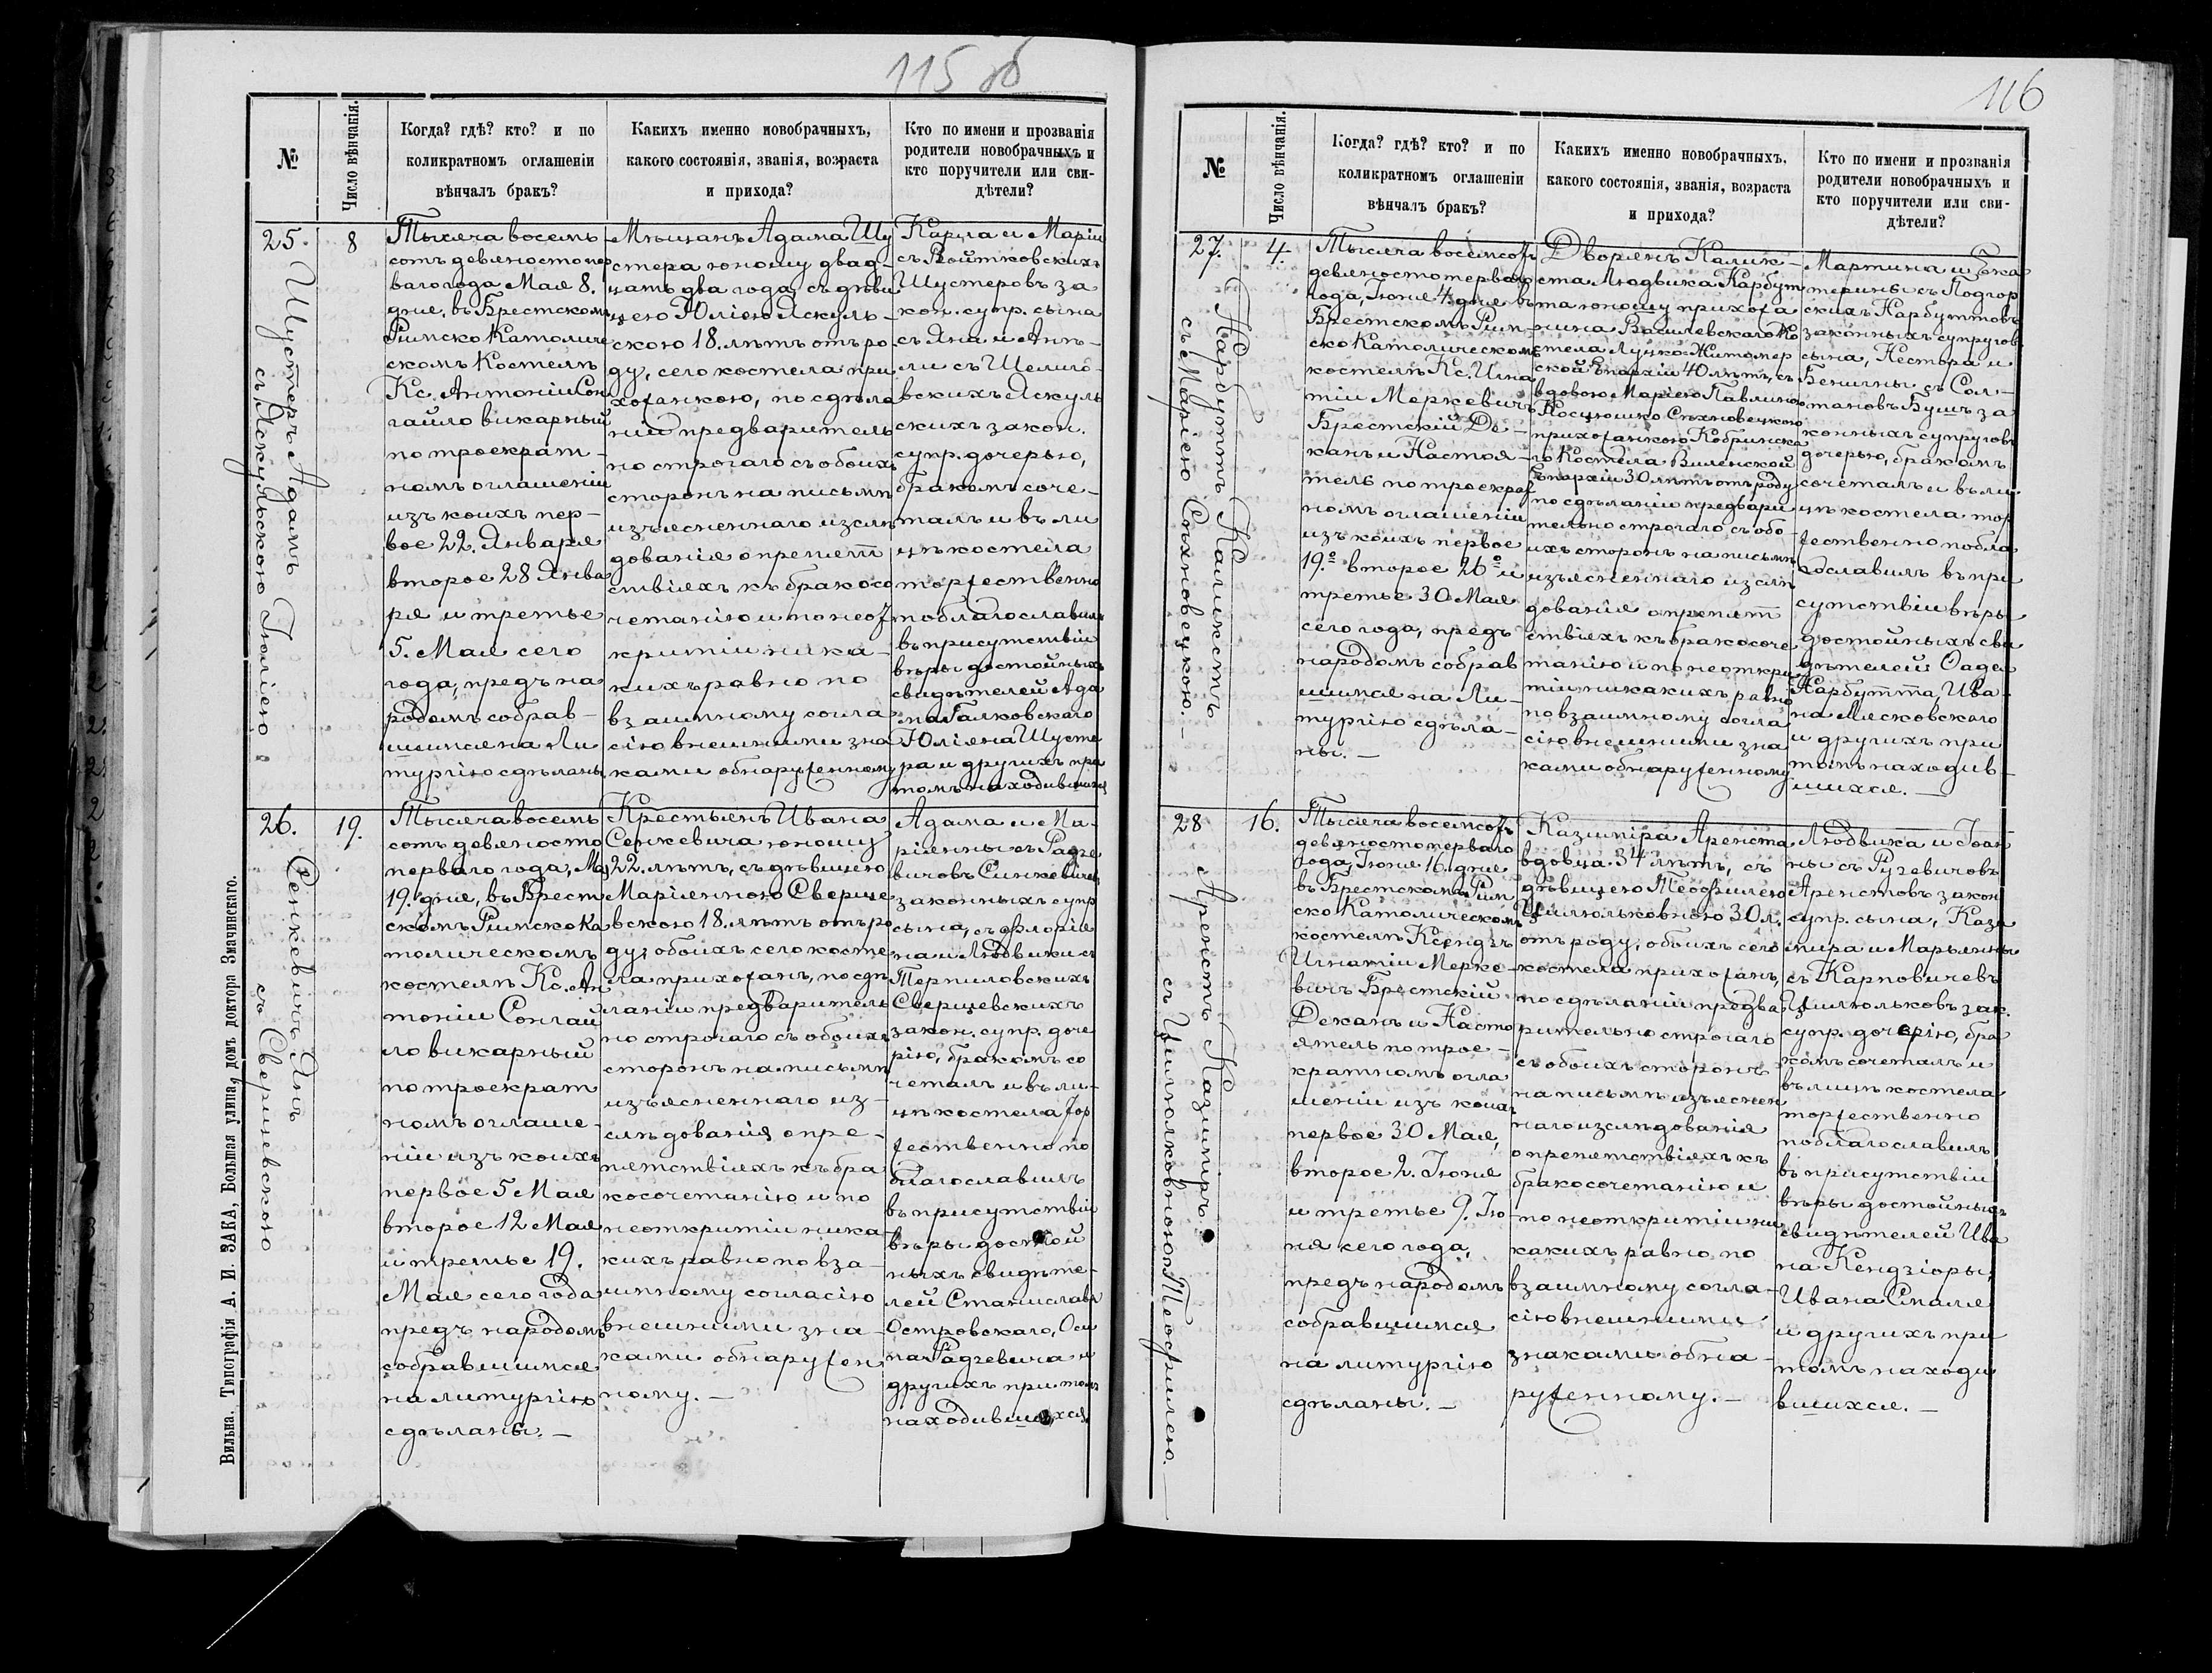 115 об
№
Число вѣнчанія.
Когда? гдѣ? кто? и по
коликратномъ оглашеніи
вѣнчалъ бракъ?
Какихъ именно новобрачныхъ,
какого состоянія, званія, возраста
и прихода?
Кто по имени и прозванія
родители новобрачныхъ и
кто поручители или сви-
дѣтели?
25.
Шустеръ Адамъ
съ Яскульскою Юліею
8
Тысяча восемь
сотъ девяносто пер
ваго года Мая 8.
дня, въ Брестскомъ
Римско Католиче
скомъ Костелѣ
Кс. Антоній Сон
гайло викарный
по троекрат-
номъ оглашеніи
изъ коихъ пер-
вое 22. Января
второе 28 Янва
ря и третье
5. Мая сего
года, предъ на
родомъ собрав-
шимся на Ли
тургію сдѣланы
Мѣщанъ Адама Шу
стера юношу двад-
цать два года, съ дѣви
цею Юліею Яскуль-
скою 18. лѣтъ отъ ро
ду, сего костела при
хожанкою, по сдѣла
ніи предваритель
но строгаго съ обоихъ
сторонъ на письмѣ
изъясненнаго изслѣ
дованія о препят
ствіяхъ къ бракосо
четанію и по неот
крытіи ника-
кихъ равно по
взаимному согла
сію внешними зна
ками обнаруженному
Карла и Маріи
съ Войтковскихъ
Шустеровъ за
кон. супр. сына
съ Яна и Анѣ-
ли съ Шелиго-
вскихъ Яскуль
скихъ закон.
супр. дочерью,
бракомъ соче-
талъ и въ ли
цѣ костела
торжественно
поблагославилъ
въ присутствіи
вѣры достойныхъ
свидѣтелей Ада
ма Галковскаго
Юліяна Шусте
ра и другихъ при
томъ находившихся
26.
Сенкевичъ Янъ
съ Сверщевскою
19.
Тысяча восемь
сотъ девяносто
перваго года, Мая
19. дня, въ Брест
скомъ Римско Ка
толическомъ
костелѣ Кс. Ан
тоній Сонгай
ло викарный
по троекрат
номъ оглаше-
ніи изъ коихъ
первое 5 Мая
второе 12 Мая
и третье 19.
Мая сего года
предъ народомъ
собравшимся
на литургію
сдѣланы. —
Крестьянъ Ивана
Сенкевича юношу
22. лѣтъ, съ дѣвицею
Маріянною Сверще
вскою 18. лѣтъ отъ ро
ду, обоихъ сего косте
ла прихожанъ, по сдѣ
ланіи предваритель
но строгаго съ обоихъ
сторонъ на письмѣ
изъясненнаго из-
слѣдованія о пре-
пятствіяхъ къ бра
косочетанію и по
неоткрытіи ника
кихъ равно по вза-
имному согласію
внешними зна-
ками обнаружен
ному. —
Адама и Ма-
ріянны съ Радзе
вичовъ Синкевичей
законныхъ супр
сына, съ Флорія
на и Людвики съ
Терпиловскихъ
Сверщевскихъ
закон. супр. доче
рію, бракомъ со
четалъ и въ ли-
цѣ костела тор
жественно по
благославилъ
въ присутствіи
вѣры достой
ныхъ свидѣте-
лей Станислава
Островскаго, Оси
па Радзевича и
другихъ при томъ
находившихся.
Вильна. Типографія А. И. ЗАКА, Большая улица, домъ доктора Змачинскаго.
116
№
Число вѣнчанія.
Когда? гдѣ? кто? и по
коликратномъ оглашеніи
вѣнчалъ бракъ?
Какихъ именно новобрачныхъ,
какого состоянія, званія, возраста
и прихода?
Кто по имени и прозванія
родители новобрачныхъ и
кто поручители или сви-
дѣтели?
27.
Нарбуттъ Каликстъ
съ Маріею Сѣхновецкою. —
4.
Тысяча восемсотъ
девяностоперваго
года, Іюня 4 дня въ
Брестскомъ Рим-
ско Католическомъ
костелѣ Кс. Игна
тій Меркевичъ
Брестскій Де-
канъ и Настоя-
тель по троекрат
номъ оглашеніи
изъ коихъ первое
19.º второе 26º и
третье 30 Мая
сего года, предъ
народомъ собрав
шимся на Ли-
тургію сдѣла-
ны. —
Дворянъ Калик-
ста Людвика Нарбут
та юношу прихожа
нина Василевскаго Ко
стела Луцко-Житомер
ской Епархіи 40 лѣтъ, съ
вдовою Маріею Павлиною
Косцюшко Сѣхновецкою
прихожанкою Кобринска
го Костела Виленской
Епархіи 30 лѣтъ отъ роду
по сдѣланіи предвари
тельно строгаго съ обо-
ихъ сторонъ на письмѣ
изъясненнаго изслѣ
дованія о препят
ствіяхъ къ бракосоче
танію и по неоткры
тіи никакихъ равно
по взаимному согла
сію внешними зна
ками обнаруженному
Мартина и Эка
терины съ Подгор
скихъ Нарбуттовъ
законныхъ супругов
сына, Нестора и
Бенигны съ Сол-
тановъ Бушъ за
конныхъ супруговъ
дочерью, бракомъ
сочеталъ и въ ли
цѣ костела тор
жественно побла
гославилъ въ при
сутствіи вѣры
достойныхъ сви
дѣтелей Фаде
Нарбутта, Ива-
на Лясковскаго
и другихъ при
томъ находив-
шихся. —
28
Аренстъ Казиміръ
съ Цилюльковною Теофилею. —
16.
Тысяча восемсотъ
девяностоперваго
года, Іюня 16. дня
въ Брестскомъ Рим
ско Католическомъ
костелѣ Ксендзъ
Игнатій Мерке-
вичъ Брестскій
Деканъ и Насто
ятель по трое-
кратномъ огла
шеніи изъ коихъ
первое 30 Мая,
второе 2. Іюня
и третье 9. Ію
ня сего года,
предъ народомъ
собравшимся
на литургію
сдѣланы. —
Казиміра Аренста
вдовца 34 лѣтъ, съ
дѣвицею Теофилею
Цилюльковною 30 л.
отъ роду, обоихъ сего
костела прихожанъ,
по сдѣланіи предва
рительно строгаго
съ обоихъ сторонъ
на письмѣ изъяснен
наго изслѣдованія
о препятствіяхъ къ
бракосочетанію и
по неоткрытіи ни
какихъ равно по
взаимному согла-
сію внешними
знаками обна-
руженному. —
Людвика и Іоан
ны съ Рузевичовъ
Аренстовъ закон
супр. сына, Кази
мира и Марьянны
съ Карповичевъ
Цилюльковъ зак.
супр. дочерію, бра
комъ сочеталъ и
въ лицѣ костела
торжественно
поблагославилъ
въ присутствіи
вѣры достойныхъ
свидѣтелей Ива
на Кендзіоры,
Ивана Смаля
и другихъ при
томъ находи
вшихся. —